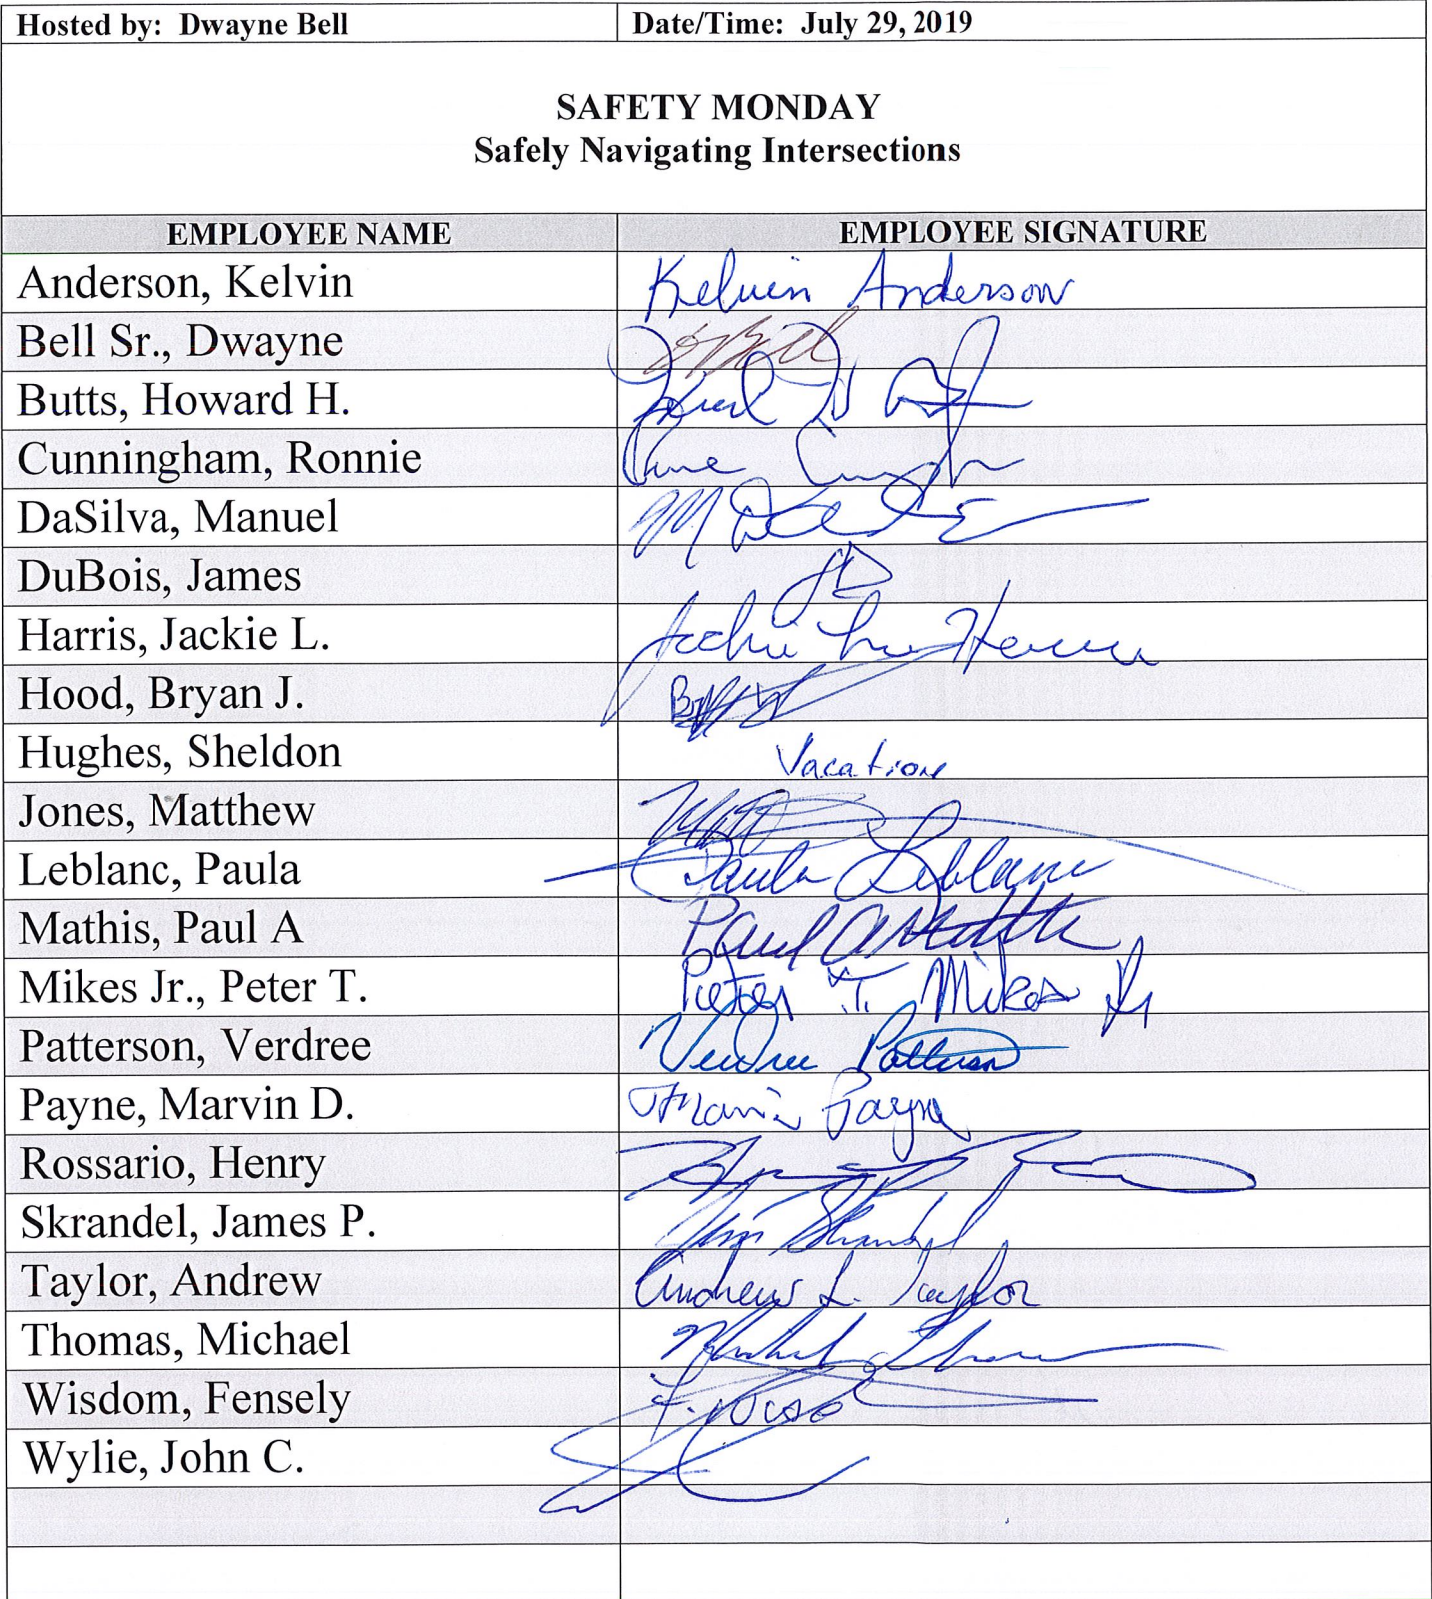 Hosted by: Dwayne Bell Date/Time: July 29, 2019
SAFETY MONDAY
Safely Navigating Intersections
EMPLOYEE NAME EMPLOYEE SIGNATURE
Anderson, Kelvin Kelvin Anderson
Bell Sr., Dwayne
Butts, Howard H.
Cunningham, Ronnie
DaSilva, Manuel
DuBois, James JD
Harris, Jackie L. Jackie
Hood, Bryan J.
Hughes, Sheldon Vacation
Jones, Matthew
Leblanc, Paula Paula Leblanc
Mathis, Paul A Paul A
Mikes Jr., Peter T. Peter T. Mikes Jr
Patterson, Verdree Verdree Patterson
Payne, Marvin D. Marvin Payne
Rossario, Henry
Skrandel, James P. Jim Skrandel
Taylor, Andrew Andrew L. Taylor
Thomas, Michael Michael Thomas
Wisdom, Fensely
Wylie, John C.